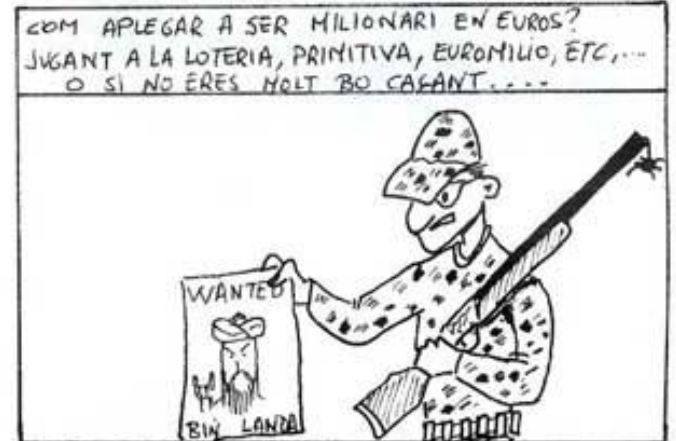 COM APLEGAR A SER MILIONARI EN EUROS?
JUGANT A LA LOTERIA, PRIMITIVA, EUROMILIO, ETC,...
O SI NO ERES MOLT BO CAÇANT....
WANTED
BIN LANDA